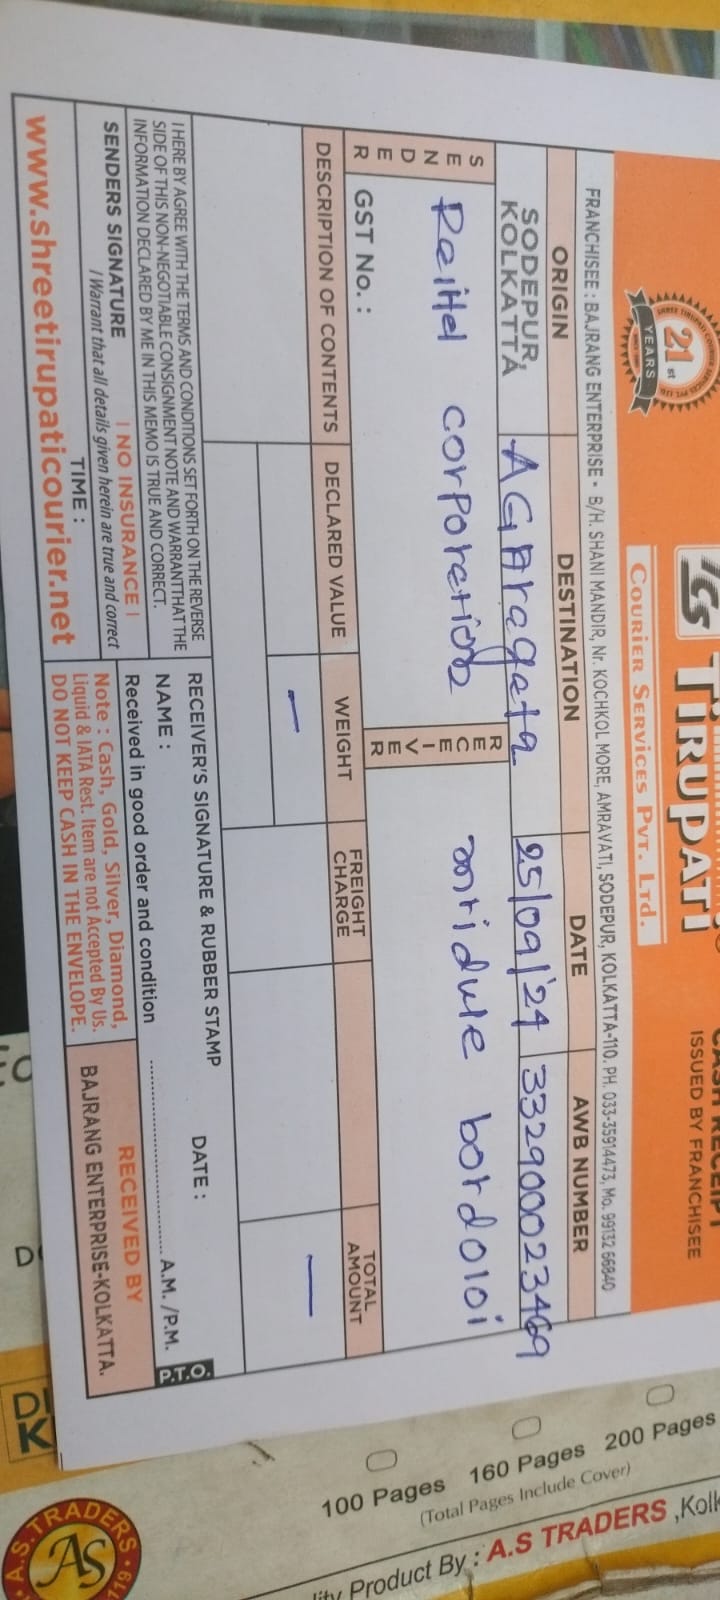 21st
YEARS
TIRUPATI
COURIER SERVICES PVT. LTD.
ISSUED BY FRANCHISEE
FRANCHISEE : BAJRANG ENTERPRISE - B/H. SHANI MANDIR, Nr. KOCHKOL MORE, AMRAVATI, SODEPUR, KOLKATTA-110. PH. 033-35914473, Mo. 99132 66840
ORIGIN DESTINATION DATE AWB NUMBER
SODEPUR, KOLKATTA AGAragata 25/09/'24 332900023469
SENDER Reitel corporetion
GST No. :
RECEIVER mridule bordoloi
DESCRIPTION OF CONTENTS DECLARED VALUE WEIGHT FREIGHT CHARGE TOTAL AMOUNT
— —
I HERE BY AGREE WITH THE TERMS AND CONDITIONS SET FORTH ON THE REVERSE
SIDE OF THIS NON-NEGOTIABLE CONSIGNMENT NOTE AND WARRANT THAT THE
INFORMATION DECLARED BY ME IN THIS MEMO IS TRUE AND CORRECT.
SENDERS SIGNATURE | NO INSURANCE |
I Warrant that all details given herein are true and correct
TIME :
www.shreetirupaticourier.net
RECEIVER'S SIGNATURE & RUBBER STAMP
NAME : DATE :
Received in good order and condition .......................... A.M. /P.M.
P.T.O.
Note : Cash, Gold, Silver, Diamond,
Liquid & IATA Rest. Item are not Accepted By Us.
DO NOT KEEP CASH IN THE ENVELOPE.
RECEIVED BY
BAJRANG ENTERPRISE-KOLKATTA.
100 Pages 160 Pages 200 Pages
(Total Pages Include Cover)
Product By : A.S TRADERS
A.S. TRADERS
AS